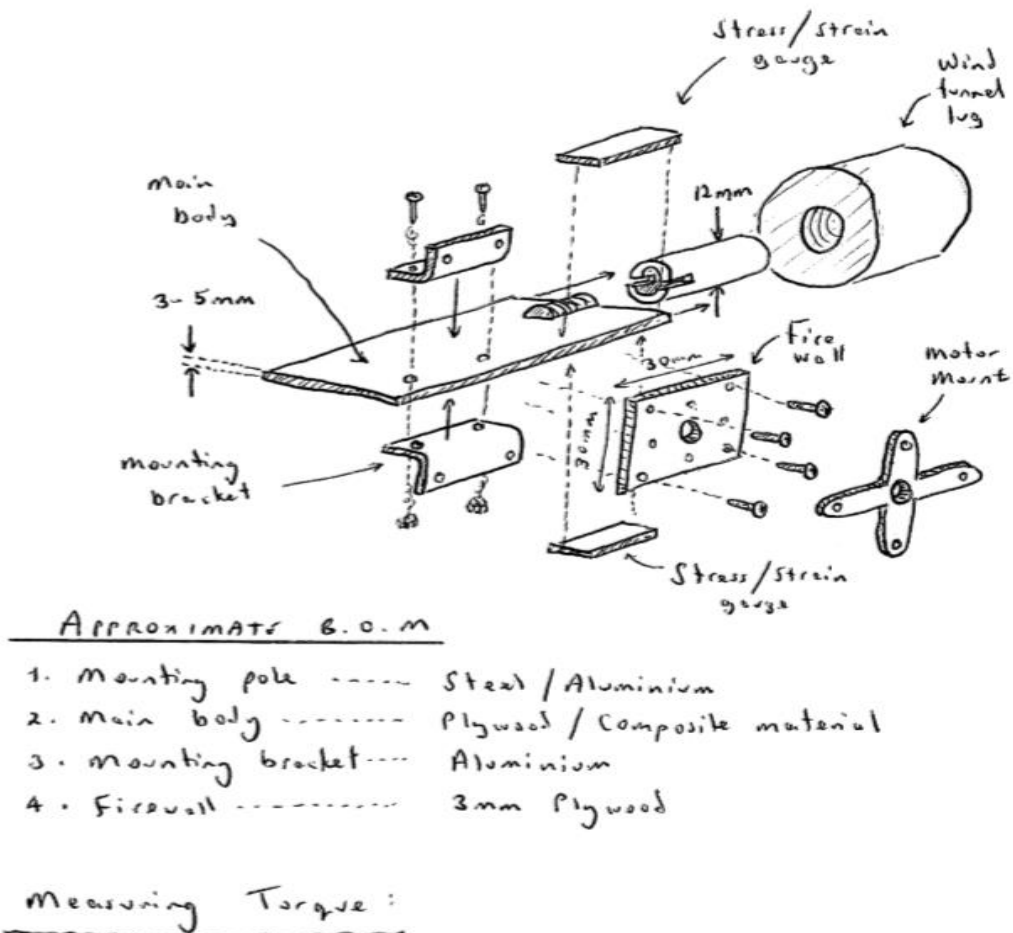 Stress/strain
gauge
Wind
tunnel
lug
main
body
12mm
3-5mm
Fire
wall
30mm
motor
mount
30mm
mounting
bracket
Stress/strain
gauge
APPROXIMATE B.O.M
1. Mounting pole ----- Steel/Aluminium
2. Main body -------- Plywood / Composite material
3. Mounting bracket---- Aluminium
4. Firewall ---------- 3mm Plywood
Measuring Torque: